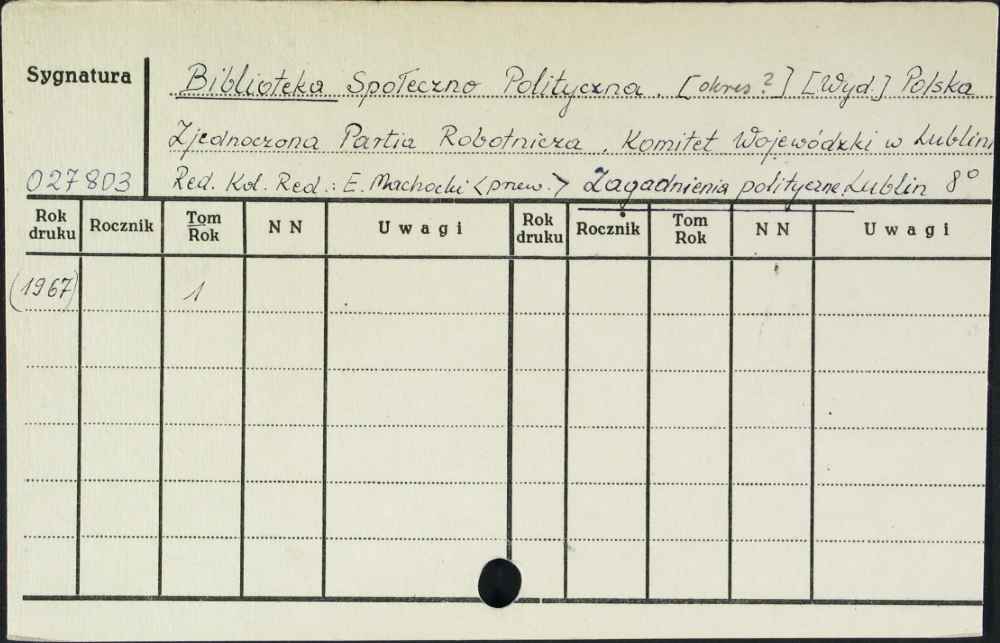 Sygnatura
Biblioteka Społeczno Polityczna. [okres?] [Wyd.] Polska
Zjednoczona Partia Robotnicza, Komitet Wojewódzki w Lublini
027803 Red. Kol. Red.: E. Machocki <przew.> Zagadnienia polityczne. Lublin 8°
Rok druku Rocznik Tom Rok N N Uwagi Rok druku Rocznik Tom Rok N N Uwagi
(1967) 1